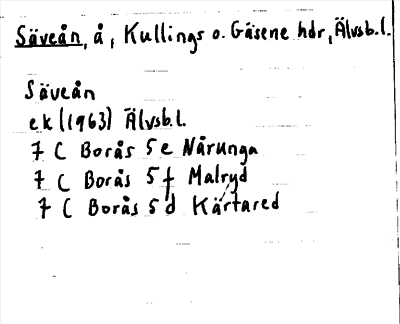 Säveån, å, Kullings o. Gäsene hdr, Älvsb.l.
Säveån
ek (1963) Älvsb.l.
7 C Borås 5 e Nårunga
7 C Borås 5 f Malryd
7 C Borås 5 d Kärtared